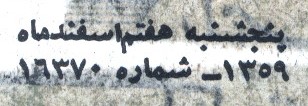 پنجشنبه هفتم اسفندماه
۱۳۵۹ـ شماره ۱۶۳۷۰